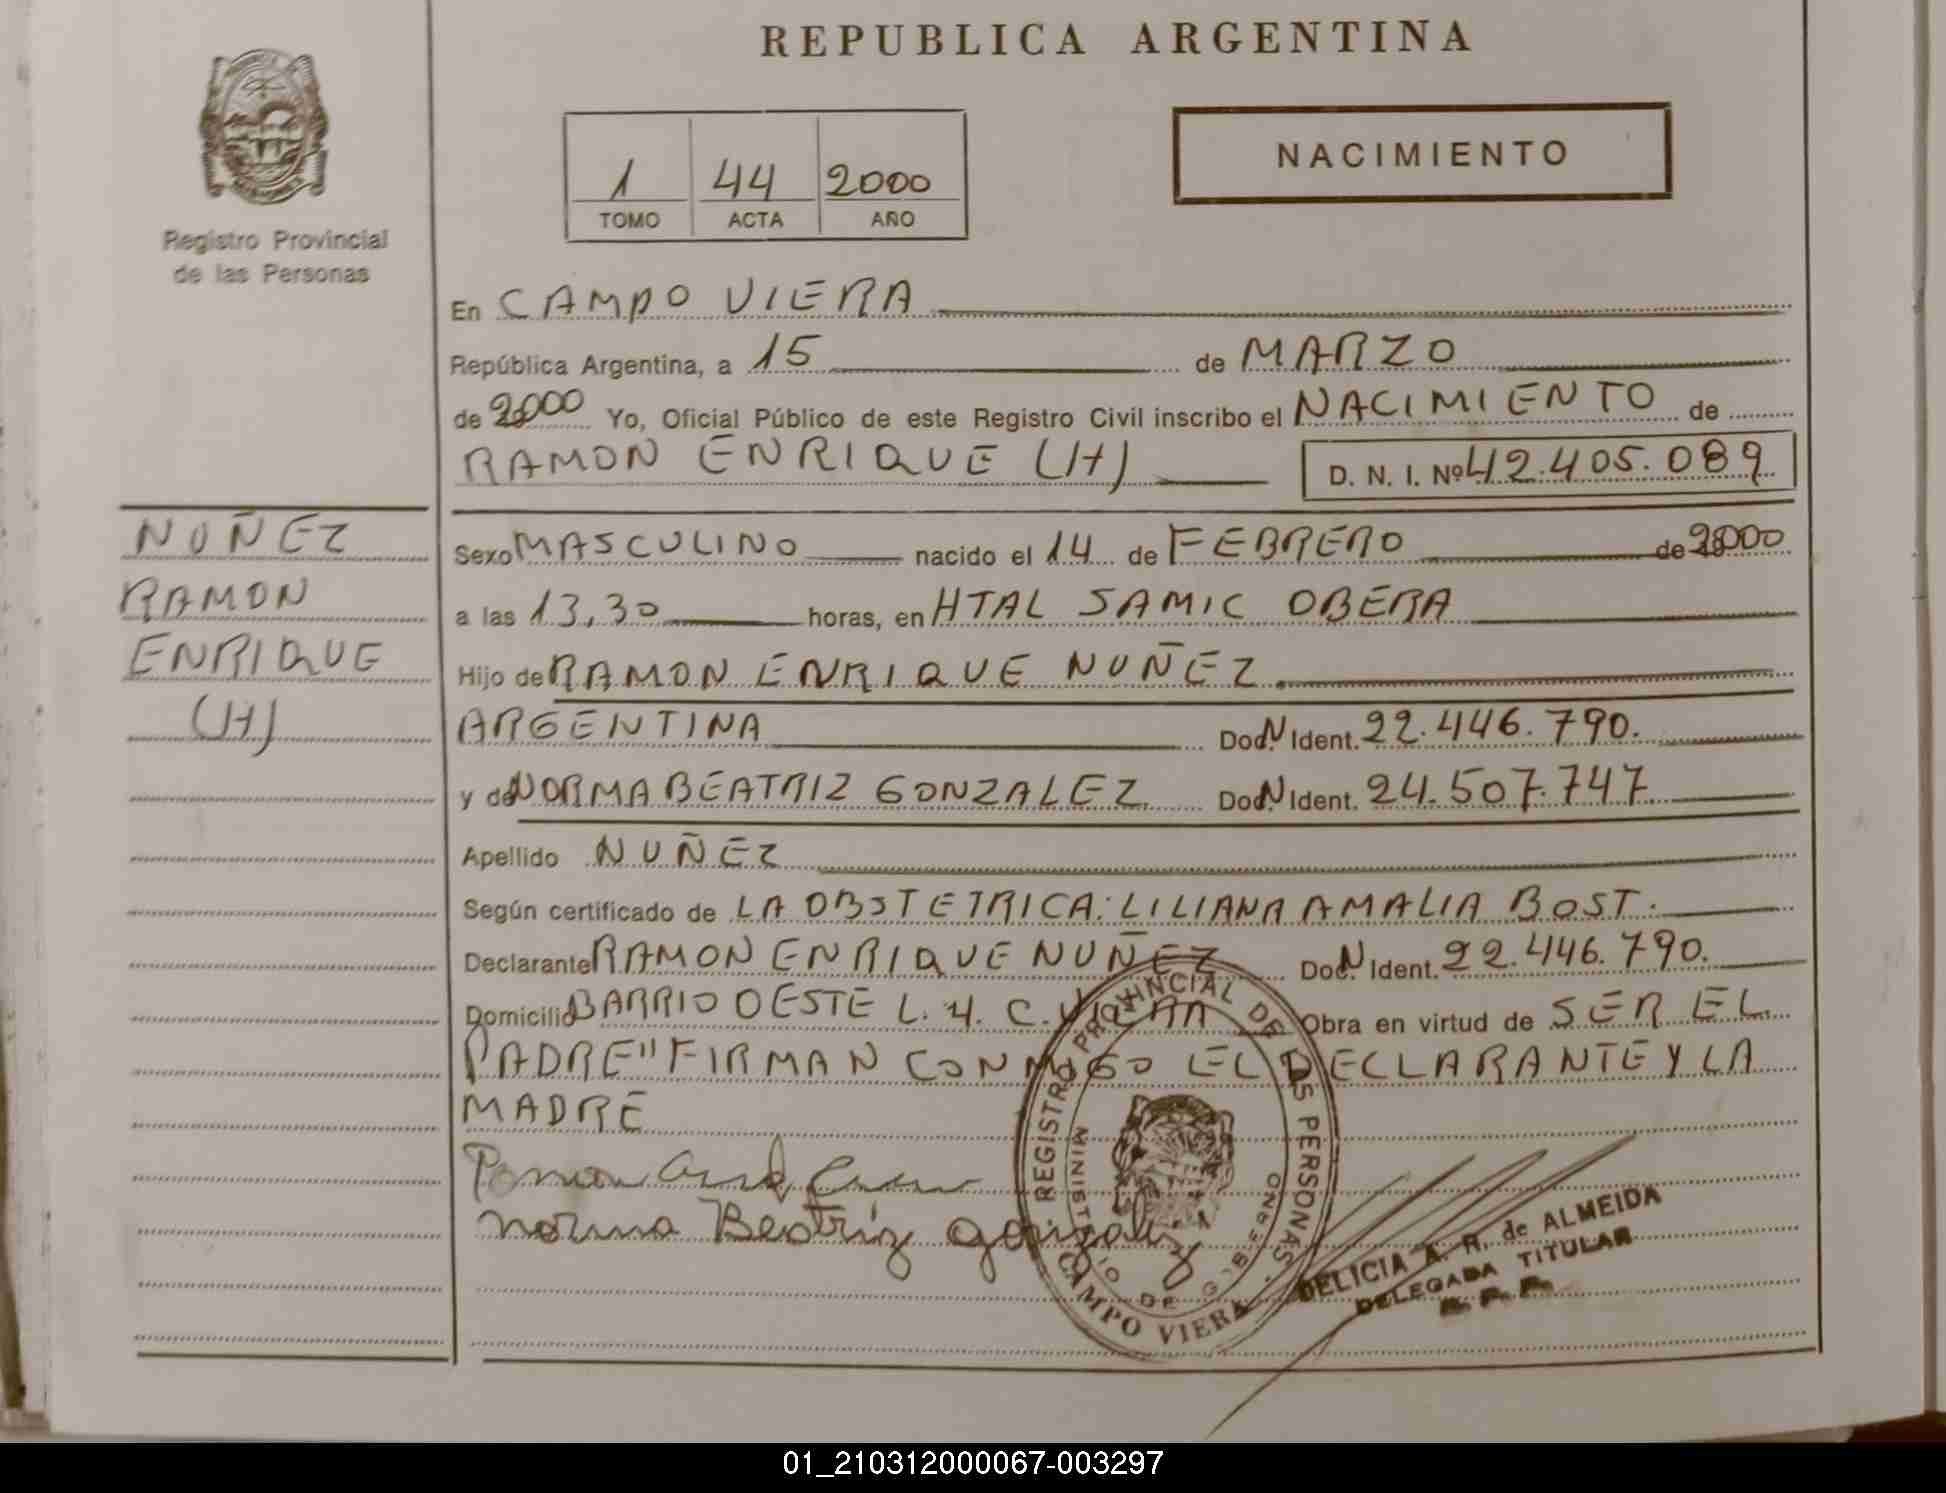 REPUBLICA ARGENTINA
Registro Provincial
de las Personas
1 44 2000
TOMO ACTA AÑO
NACIMIENTO
En CAMPO VIERA
República Argentina, a 15 de MARZO
de 2000 Yo, Oficial Público de este Registro Civil inscribo el NACIMIENTO de
RAMON ENRIQUE (H) D. N. I. Nº 42.405.089
NUÑEZ
RAMON
ENRIQUE
(H)
Sexo MASCULINO nacido el 14 de FEBRERO de 2000
a las 13,30 horas, en HTAL SAMIC OBERA
Hijo de RAMON ENRIQUE NUÑEZ
ARGENTINA Doc. N Ident. 22.446.790.
y de NORMA BEATRIZ GONZALEZ Doc. N Ident. 24.507.747
Apellido NUÑEZ
Según certificado de LA OBSTETRICA: LILIANA AMALIA BOST.
Declarante RAMON ENRIQUE NUÑEZ Doc. N Ident. 22.446.790.
Domicilio BARRIO OESTE L. 4. C. VIERA Obra en virtud de SER EL
PADRE" FIRMAN CONMIGO EL DECLARANTE Y LA
MADRE
Norma Beatriz Gonzalez
REGISTRO PROVINCIAL DE LAS PERSONAS
MINISTERIO DE GOBIERNO
CAMPO VIERA
DELICIA A. R. de ALMEIDA
DELEGADA TITULAR
R. P. P.
01_210312000067-003297